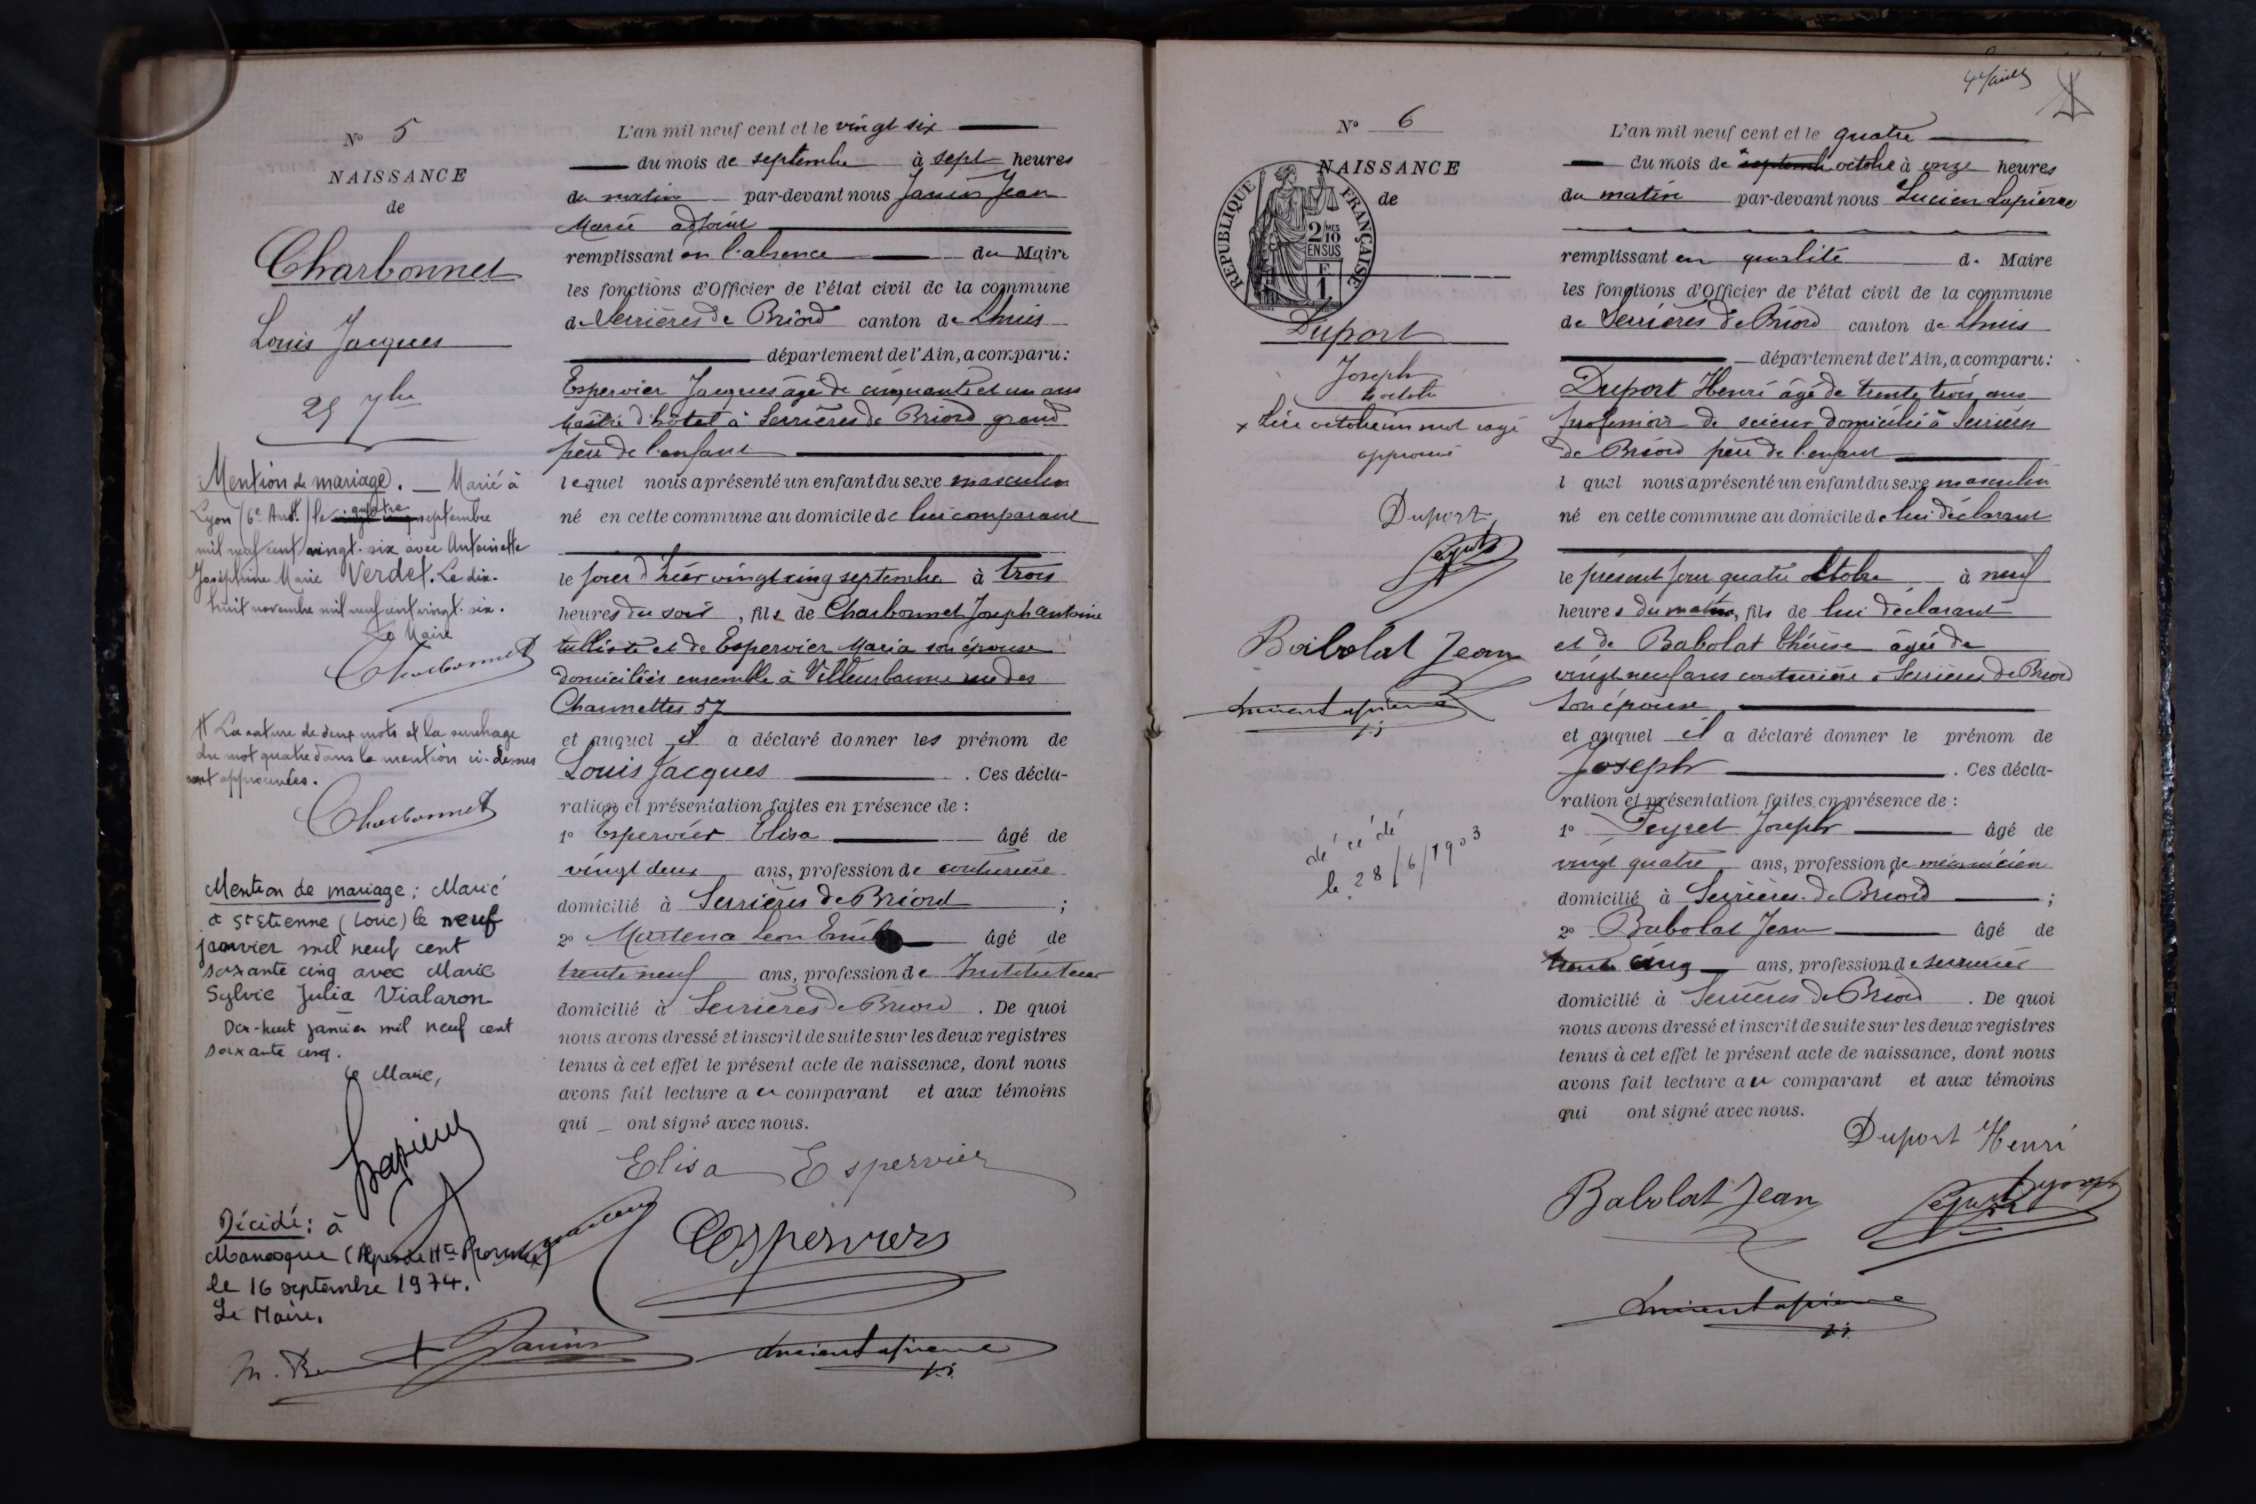 N° 5
NAISSANCE
de
Charbonnet
Louis Jacques
25 7bre
Mention de mariage. — Marié à
Lyon (6e Arrt.) le quatre septembre
mil neuf cent vingt-six avec Antoinette
Joséphine Marie Verdet. Le dix-
huit novembre mil neuf cent vingt-six.
Le Maire
Charbonnet
La rature de deux mots et la surcharge
du mot quatre dans la mention ci-dessus
sont approuvées.
Charbonnet
Mention de mariage : Marié
à St Etienne (Loire) le neuf
janvier mil neuf cent
soixante cinq avec Marie
Sylvie Julia Vialaron
Dix-huit janvier mil neuf cent
soixante cinq.
Le Maire,
Lapierre
Décédé : à
Manosque (Alpes de Hte Provence)
le 16 septembre 1974.
Le Maire.
L'an mil neuf cent et le vingt six
du mois de septembre à sept heures
du matin par-devant nous Janin Jean
Marie adjoint
remplissant en l'absence du Maire
les fonctions d'Officier de l'état civil de la commune
de Serrières de Briord canton de Lhuis
département de l'Ain, a comparu :
Espervier Jacques âgé de cinquante et un ans
maître d'hôtel à Serrières de Briord grand
père de l'enfant
lequel nous a présenté un enfant du sexe masculin
né en cette commune au domicile de lui comparant
le jour d'hier vingt cinq septembre à trois
heures du soir, fils de Charbonnet Joseph Antoine
tulliste et de Espervier Maria son épouse
domiciliés ensemble à Villeurbanne rue des
Charmettes 57
et auquel il a déclaré donner les prénom de
Louis Jacques . Ces décla-
ration et présentation faites en présence de :
1° Espervier Elisa âgé de
vingt deux ans, profession de couturière
domicilié à Serrières de Briord ;
2° Martena Léon Emile âgé de
trente neuf ans, profession de Instituteur
domicilié à Serrières de Briord . De quoi
nous avons dressé et inscrit de suite sur les deux registres
tenus à cet effet le présent acte de naissance, dont nous
avons fait lecture au comparant et aux témoins
qui ont signé avec nous.
Elisa Espervier
Espervier
Janin
Lucien Lapierre
4 Juillet
N° 6
NAISSANCE
de
RÉPUBLIQUE FRANÇAISE
2 MES 10 EN SUS
F 1
Duport
Joseph
4 octobre
x Lire octobre un mot rayé
approuvé
Duport
Babolat Jean
Lucien Lapierre
décédé
le 28/6/1903
L'an mil neuf cent et le quatre
du mois de septembre octobre à onze heures
du matin par-devant nous Lucien Lapierre
remplissant en qualité de Maire
les fonctions d'Officier de l'état civil de la commune
de Serrières de Briord canton de Lhuis
département de l'Ain, a comparu :
Duport Henri âgé de trente trois ans
profession de scieur domicilié à Serrières
de Briord père de l'enfant
l quel nous a présenté un enfant du sexe masculin
né en cette commune au domicile de lui déclarant
le présent jour quatre octobre à neuf
heures du matin, fils de lui déclarant
et de Babolat Thérèse âgée de
vingt neuf ans couturière à Serrières de Briord
son épouse
et auquel il a déclaré donner le prénom de
Joseph . Ces décla-
ration et présentation faites en présence de :
1° Peyret Joseph âgé de
vingt quatre ans, profession de mécanicien
domicilié à Serrières de Briord ;
2° Babolat Jean âgé de
trente cinq ans, profession de serrurier
domicilié à Serrières de Briord . De quoi
nous avons dressé et inscrit de suite sur les deux registres
tenus à cet effet le présent acte de naissance, dont nous
avons fait lecture au comparant et aux témoins
qui ont signé avec nous.
Duport Henri
Babolat Jean
Lucien Lapierre